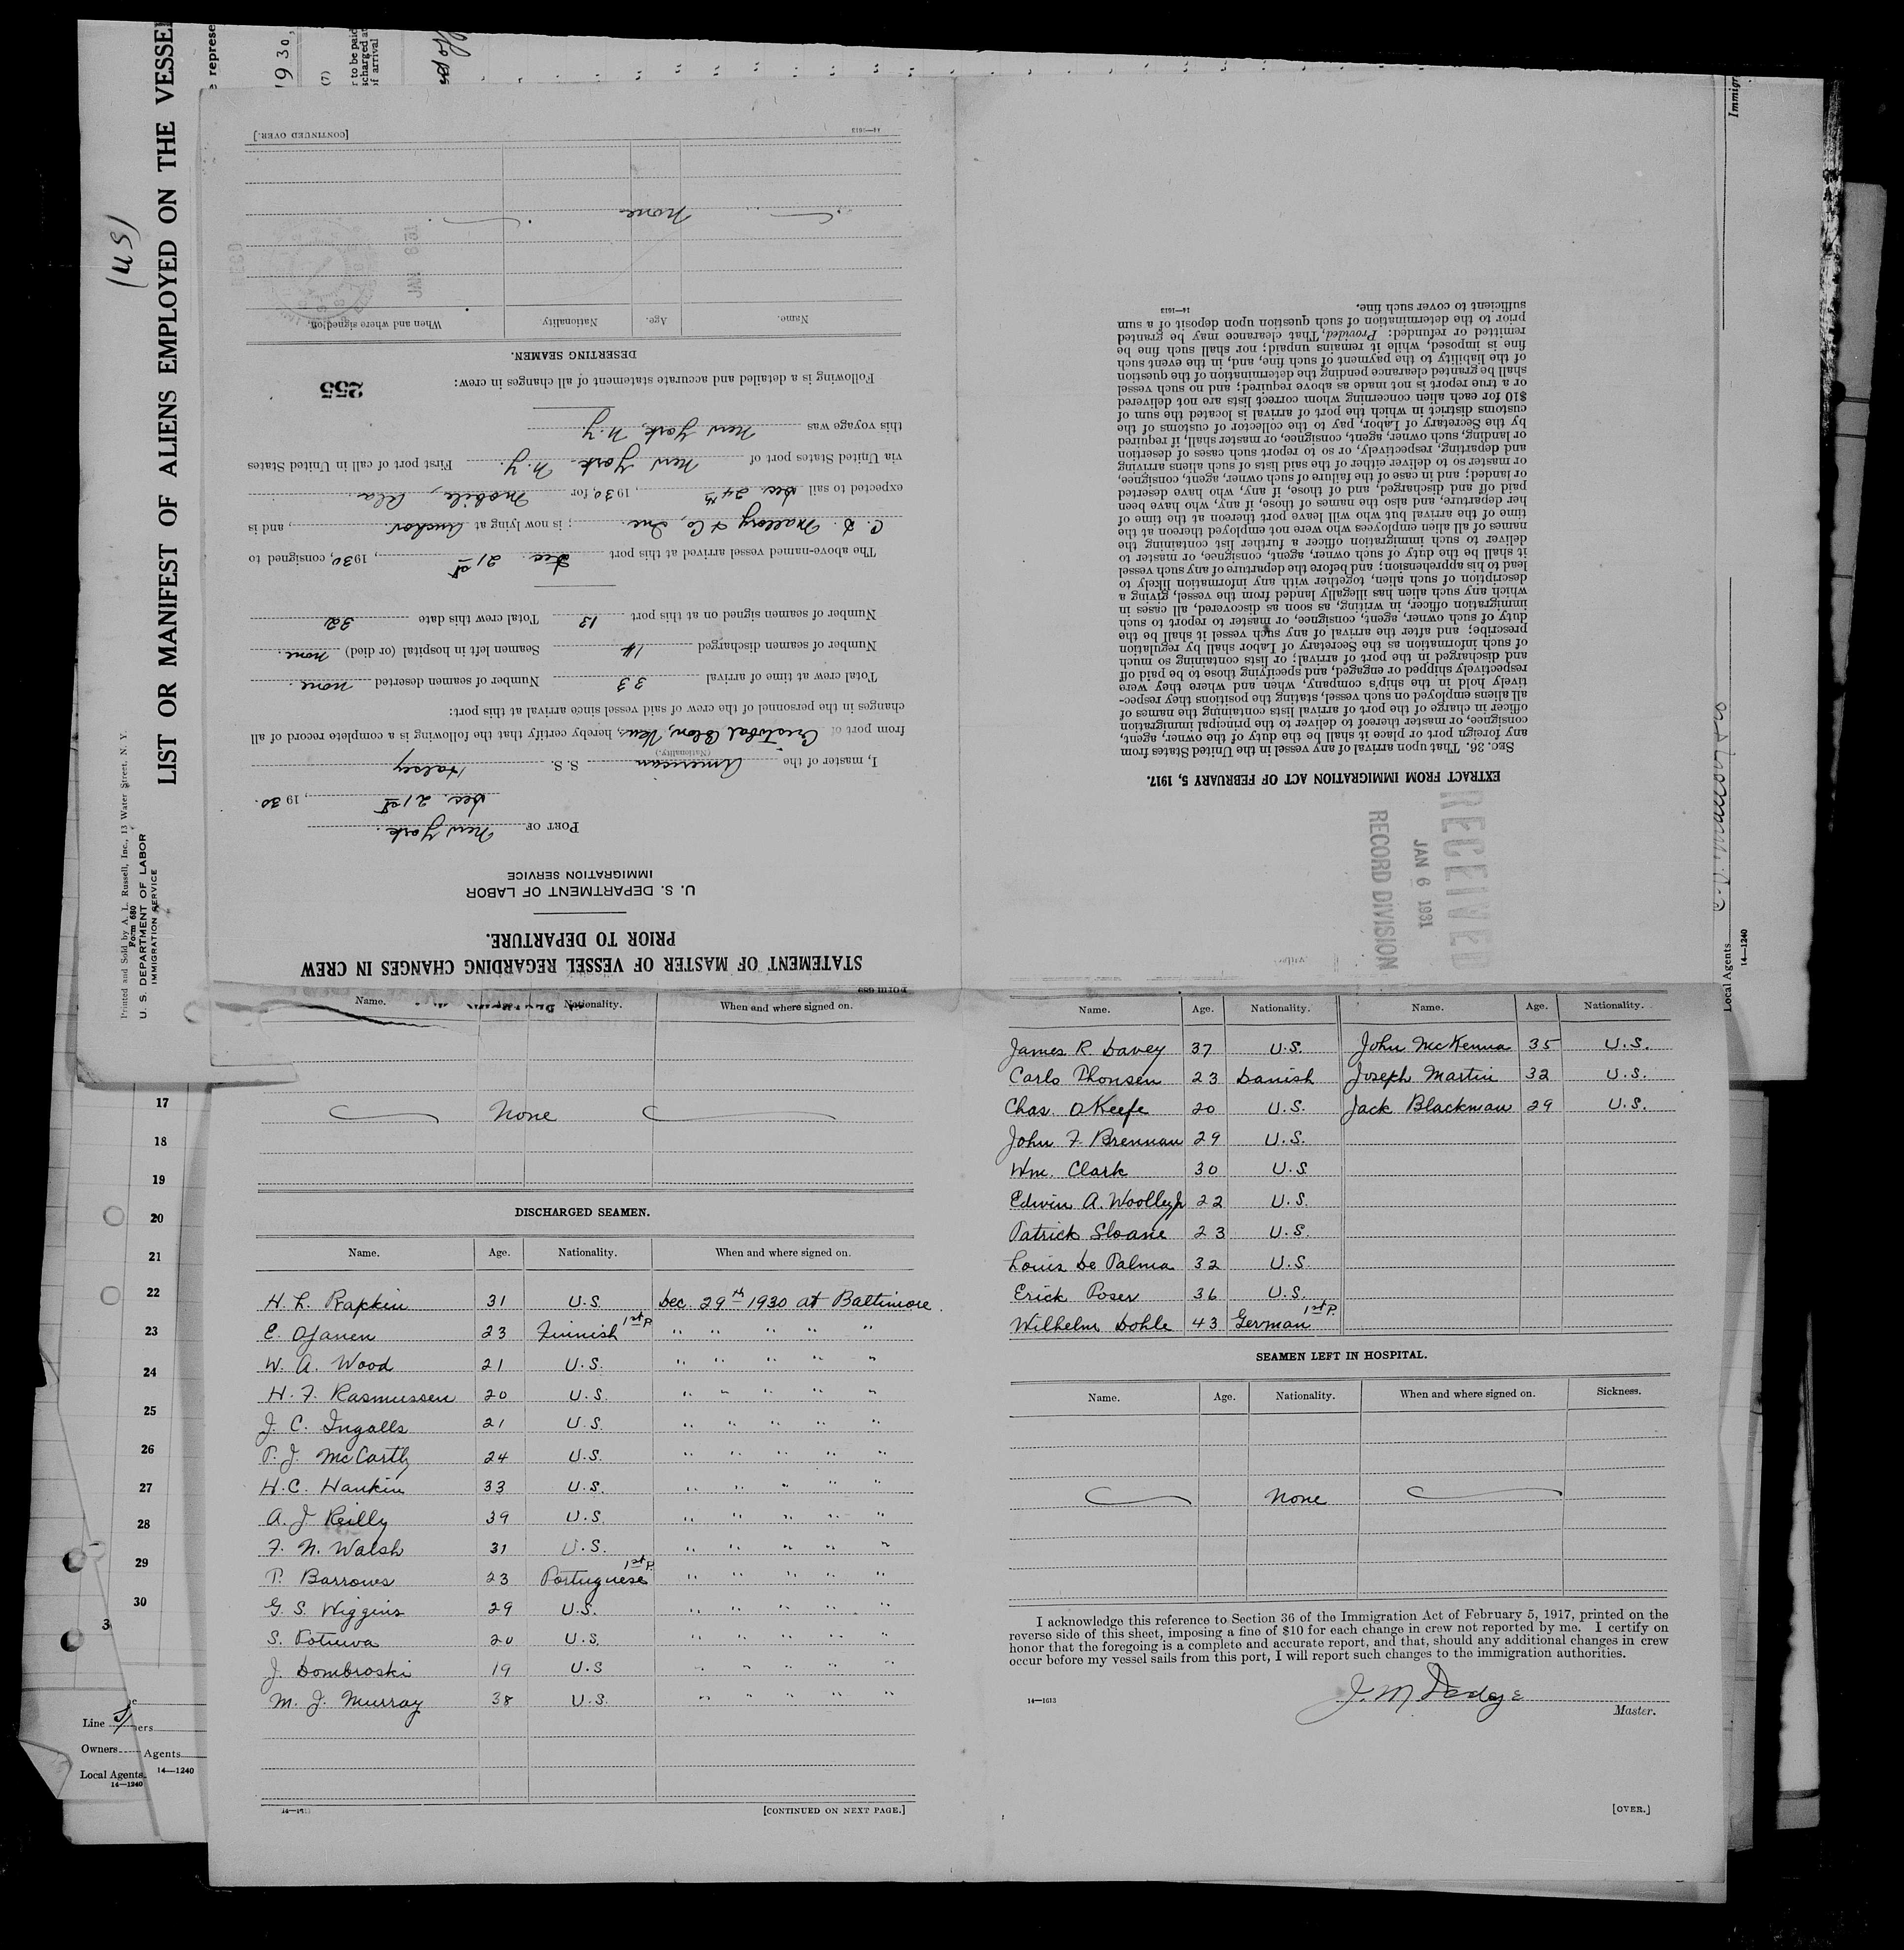 LIST OR MANIFEST OF ALIENS EMPLOYED ON THE VESSEL
(us)
Printed and Sold by A. L. Russell, Inc., 13 Water Street, N. Y.
Form 680
U. S. DEPARTMENT OF LABOR
IMMIGRATION SERVICE
STATEMENT OF MASTER OF VESSEL REGARDING CHANGES IN CREW
PRIOR TO DEPARTURE.
U. S. DEPARTMENT OF LABOR
IMMIGRATION SERVICE
PORT OF New York.
Dec. 21st, 1930.
I, master of the American S. S. Halsey
(Nationality.)
from port of Cristobal Colon, Ven., hereby certify that the following is a complete record of all
changes in the personnel of the crew of said vessel since arrival at this port:
Total crew at time of arrival 33 Number of seamen deserted none.
Number of seamen discharged 14 Seamen left in hospital (or died) none.
Number of seamen signed on at this port 13 Total crew this date 32
The above-named vessel arrived at this port Dec. 21st, 1930, consigned to
C. D. Mallory & Co, Inc; is now lying at Anchor, and is
expected to sail Dec 24th, 1930, for Mobile, Ala.
via United States port of New York N.Y. First port of call in United States
this voyage was New York, N.Y
Following is a detailed and accurate statement of all changes in crew:
255
DESERTING SEAMEN.
Name. Age. Nationality When and where signed on.
JAN 8 1931
none
14—1613 [CONTINUED OVER.]
RECEIVED
JAN 6 1931
RECORD DIVISION
EXTRACT FROM IMMIGRATION ACT OF FEBRUARY 5, 1917.
SEC. 36. That upon arrival of any vessel in the United States from
any foreign port or place it shall be the duty of the owner, agent,
consignee, or master thereof to deliver to the principal immigration
officer in charge of the port of arrival lists containing the names of
all aliens employed on such vessel, stating the positions they respec-
tively hold in the ship's company, when and where they were
respectively shipped or engaged, and specifying those to be paid off
and discharged in the port of arrival; or lists containing so much
of such information as the Secretary of Labor shall by regulation
prescribe; and after the arrival of any such vessel it shall be the
duty of such owner, agent, consignee, or master to report to such
immigration officer, in writing, as soon as discovered, all cases in
which any such alien has illegally landed from the vessel, giving a
description of such alien, together with any information likely to
lead to his apprehension; and before the departure of any such vessel
it shall be the duty of such owner, agent, consignee, or master to
deliver to such immigration officer a further list containing the
names of all alien employees who were not employed thereon at the
time of the arrival but who will leave port thereon at the time of
her departure, and also the names of those, if any, who have been
paid off and discharged, and of those, if any, who have deserted
or landed; and in case of the failure of such owner, agent, consignee,
or master so to deliver either of the said lists of such aliens arriving
and departing, respectively, or so to report such cases of desertion
or landing, such owner, agent, consignee, or master shall, if required
by the Secretary of Labor, pay to the collector of customs of the
customs district in which the port of arrival is located the sum of
$10 for each alien concerning whom correct lists are not delivered
or a true report is not made as above required; and no such vessel
shall be granted clearance pending the determination of the question
of the liability to the payment of such fine, and, in the event such
fine is imposed, while it remains unpaid; nor shall such fine be
remitted or refunded: Provided, That clearance may be granted
prior to the determination of such question upon deposit of a sum
sufficient to cover such fine.
14—1613
Name. Nationality. When and where signed on.
None
DISCHARGED SEAMEN.
Name. Age. Nationality. When and where signed on.
H. L. Rapkin 31 U.S. Dec. 29th 1930 at Baltimore.
E. Ojanen 23 Finnish 1st P. " " " " "
W. A. Wood 21 U.S. " " " " "
H. F. Rasmussen 20 U.S. " " " " "
J. C. Ingalls 21 U.S. " " " " "
P. J. McCarthy 24 U.S. " " " " "
H. C. Hankin 33 U.S. " " " " "
A. J. Reilly 39 U.S. " " " " "
F. N. Walsh 31 U.S. " " " " "
P. Barrows 23 Portuguese 1st P. " " " " "
G. S. Wiggins 29 U.S. " " " " "
S. 20 U.S. " " " " "
J. Dombroski 19 U.S " " " " "
M. J. Murray 38 U.S. " " " " "
[CONTINUED ON NEXT PAGE.]
Name. Age. Nationality. Name. Age. Nationality.
James R Davey 37 U.S. John McKenna 35 U.S.
Carlo Thonsen 23 Danish Joseph Martin 32 U.S.
Chas. OKeefe 20 U.S. Jack Blackman 29 U.S.
John F. Brennan 29 U.S.
Wm. Clark 30 U.S
Edwin A. Woolley Jr 22 U.S.
Patrick Sloane 23 U.S.
Louis De Palma 32 U.S.
Erick Poser 36 U.S.
Wilhelm Dohle 43 German 1st P.
SEAMEN LEFT IN HOSPITAL.
Name. Age. Nationality. When and where signed on. Sickness.
None
I acknowledge this reference to Section 36 of the Immigration Act of February 5, 1917, printed on the
reverse side of this sheet, imposing a fine of $10 for each change in crew not reported by me. I certify on
honor that the foregoing is a complete and accurate report, and that, should any additional changes in crew
occur before my vessel sails from this port, I will report such changes to the immigration authorities.
J. M Dodge
14—1613 Master.
[OVER.]
17
18
19
20
21
22
23
24
25
26
27
28
29
30
3
Line
Owners
Agents
Local Agents
14—1240
14—1240
Local Agents
14—1240